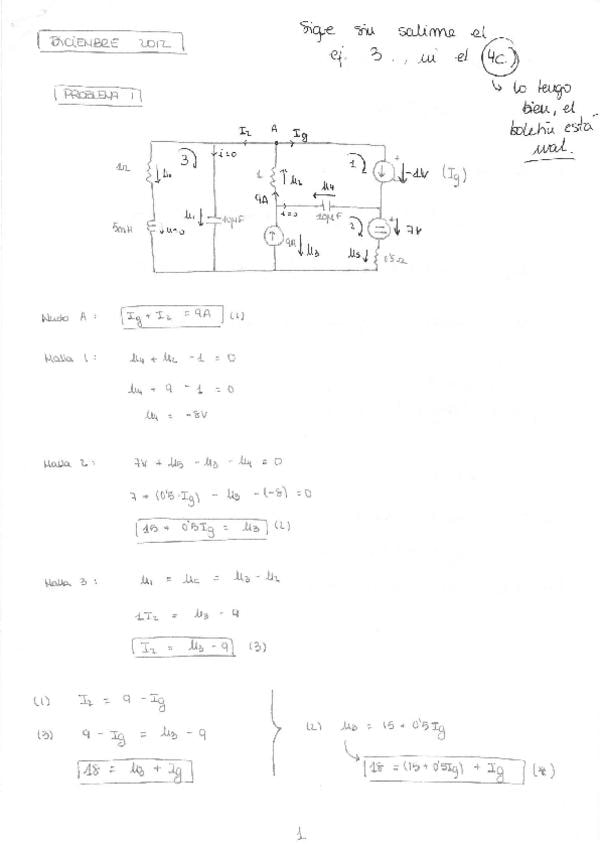 DICIEMBRE 2012
Sigue sin salirme el
ej. 3., ni el (4c.)
↳ lo tengo
bien, el
boletín está
mal.
PROBLEMA 1
I2 A Ig
1Ω 3 i=0 1 μ2 μ4 1 -1V (Ig)
9A i=0 10μF
5mH μ=0 μ1 10μF 9A μ3 2 7V
μ5 0'5Ω
Nudo A: Ig + I2 = 9A (1)
Malla 1: μ4 + μ2 - 1 = 0
μ4 + 9 - 1 = 0
μ4 = -8V
Malla 2: 7V + μ5 - μ3 - μ4 = 0
7 + (0'5·Ig) - μ3 - (-8) = 0
15 + 0'5Ig = μ3 (2)
Malla 3: μ1 = μ6 = μ3 - μ2
1I2 = μ3 - 9
I2 = μ3 - 9 (3)
(1) I2 = 9 - Ig
(3) 9 - Ig = μ3 - 9
18 = μ3 + Ig
(2) μ3 = 15 + 0'5Ig
18 = (15 + 0'5Ig) + Ig (*)
1